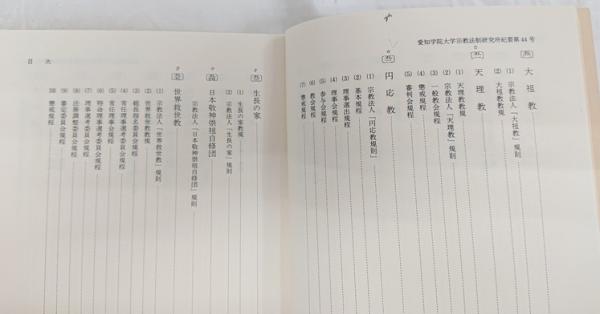 愛知学院大学宗教法制研究所紀要第44号
大祖教
(1) 宗教法人「大祖教」規則
(2) 大祖教教規
天理教
(1) 天理教教規
(2) 宗教法人「天理教」規則
(3) 一般教会規程
(4) 懲戒規程
(5) 審判会規程
円応教
(1) 宗教法人「円応教規則」
(2) 基本規程
(3) 理事選出規程
(4) 理事会規程
(5) 参与会規程
(6) 教会規程
(7) 懲戒規程
目次
生長の家
(1) 生長の家教規
(2) 宗教法人「生長の家」規則
日本敬神崇祖自修団
宗教法人「日本敬神崇祖自修団」規則
世界救世教
(1) 宗教法人「世界救世教」規則
(2) 世界救世教教規
(3) 総長指名委員会規程
(4) 責任理事選考委員会規程
(5) 責任理事会規程
(6) 特命理事選考委員会規程
(7) 理事選考委員会規程
(8) 法務調整委員会規程
(9) 審定委員会規程
(10) 懲戒規程